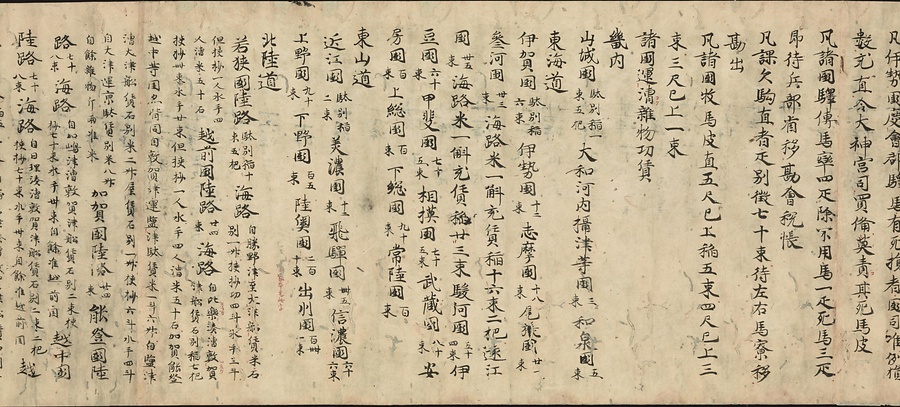 數充直令大神宮司買備莫責其死馬皮
凡諸國驛傳馬率四疋除不用馬一疋死馬三疋
即待兵部省移勘會稅帳
凡課欠駒直者疋別徴七十束待左右馬寮移
勘出
凡諸國牧馬皮直五尺已上稲五束四尺已上三
束三尺已上一束
諸國運漕雜物功賃
畿内
山城國駄別稲一束五把大和河内攝津等國三束和泉國五束
東海道
伊賀國駄別稲六束伊勢國十二束志摩國十八束尾張國廿一束
參河國卅三束海路米一斛充賃稲十六束二把遠江
國卅五束海路米一斛充賃稲廿三束駿河國五十四束伊
豆國六十六束甲斐國七十五束相摸國七十七束武藏國八十束安
房國百束上総國百束下総國九十束常陸國百束
東山道
近江國駄別稲二束美濃國十二束飛騨國卅五束信濃國六十六束
上野國九十束下野國百五束陸奥國二百十束出羽國二百卅一束
北陸道
若狭國陸路駄別稲十束五把海路自勝野津至大津船賃米石別一升挾杪功四斗水手三斗
但挾杪一人水手四人漕米五十石越前國陸路廿四束海路自比樂湊漕敦賀津船賃石別稲七把
挾杪卌束水手廿束但挾杪一人水手四人漕米五十石加賀能登
越中等國亦同自敦賀津運鹽津駄賃米一斗六升自鹽津
漕大津船賃石別米二升屋賃石別一升挾杪六斗水手四斗
自大津運京駄賃別米八升自餘雜物斤兩准米加賀國陸路能登國陸